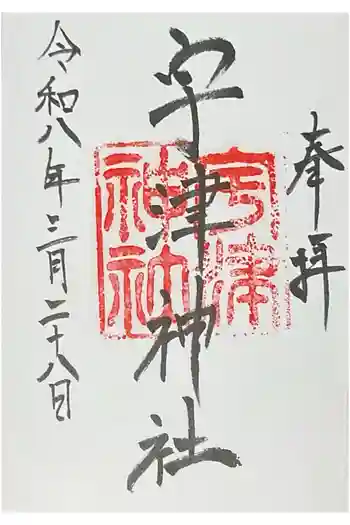 奉拝
宇津神社
宇津
神社
令和八年三月二十八日